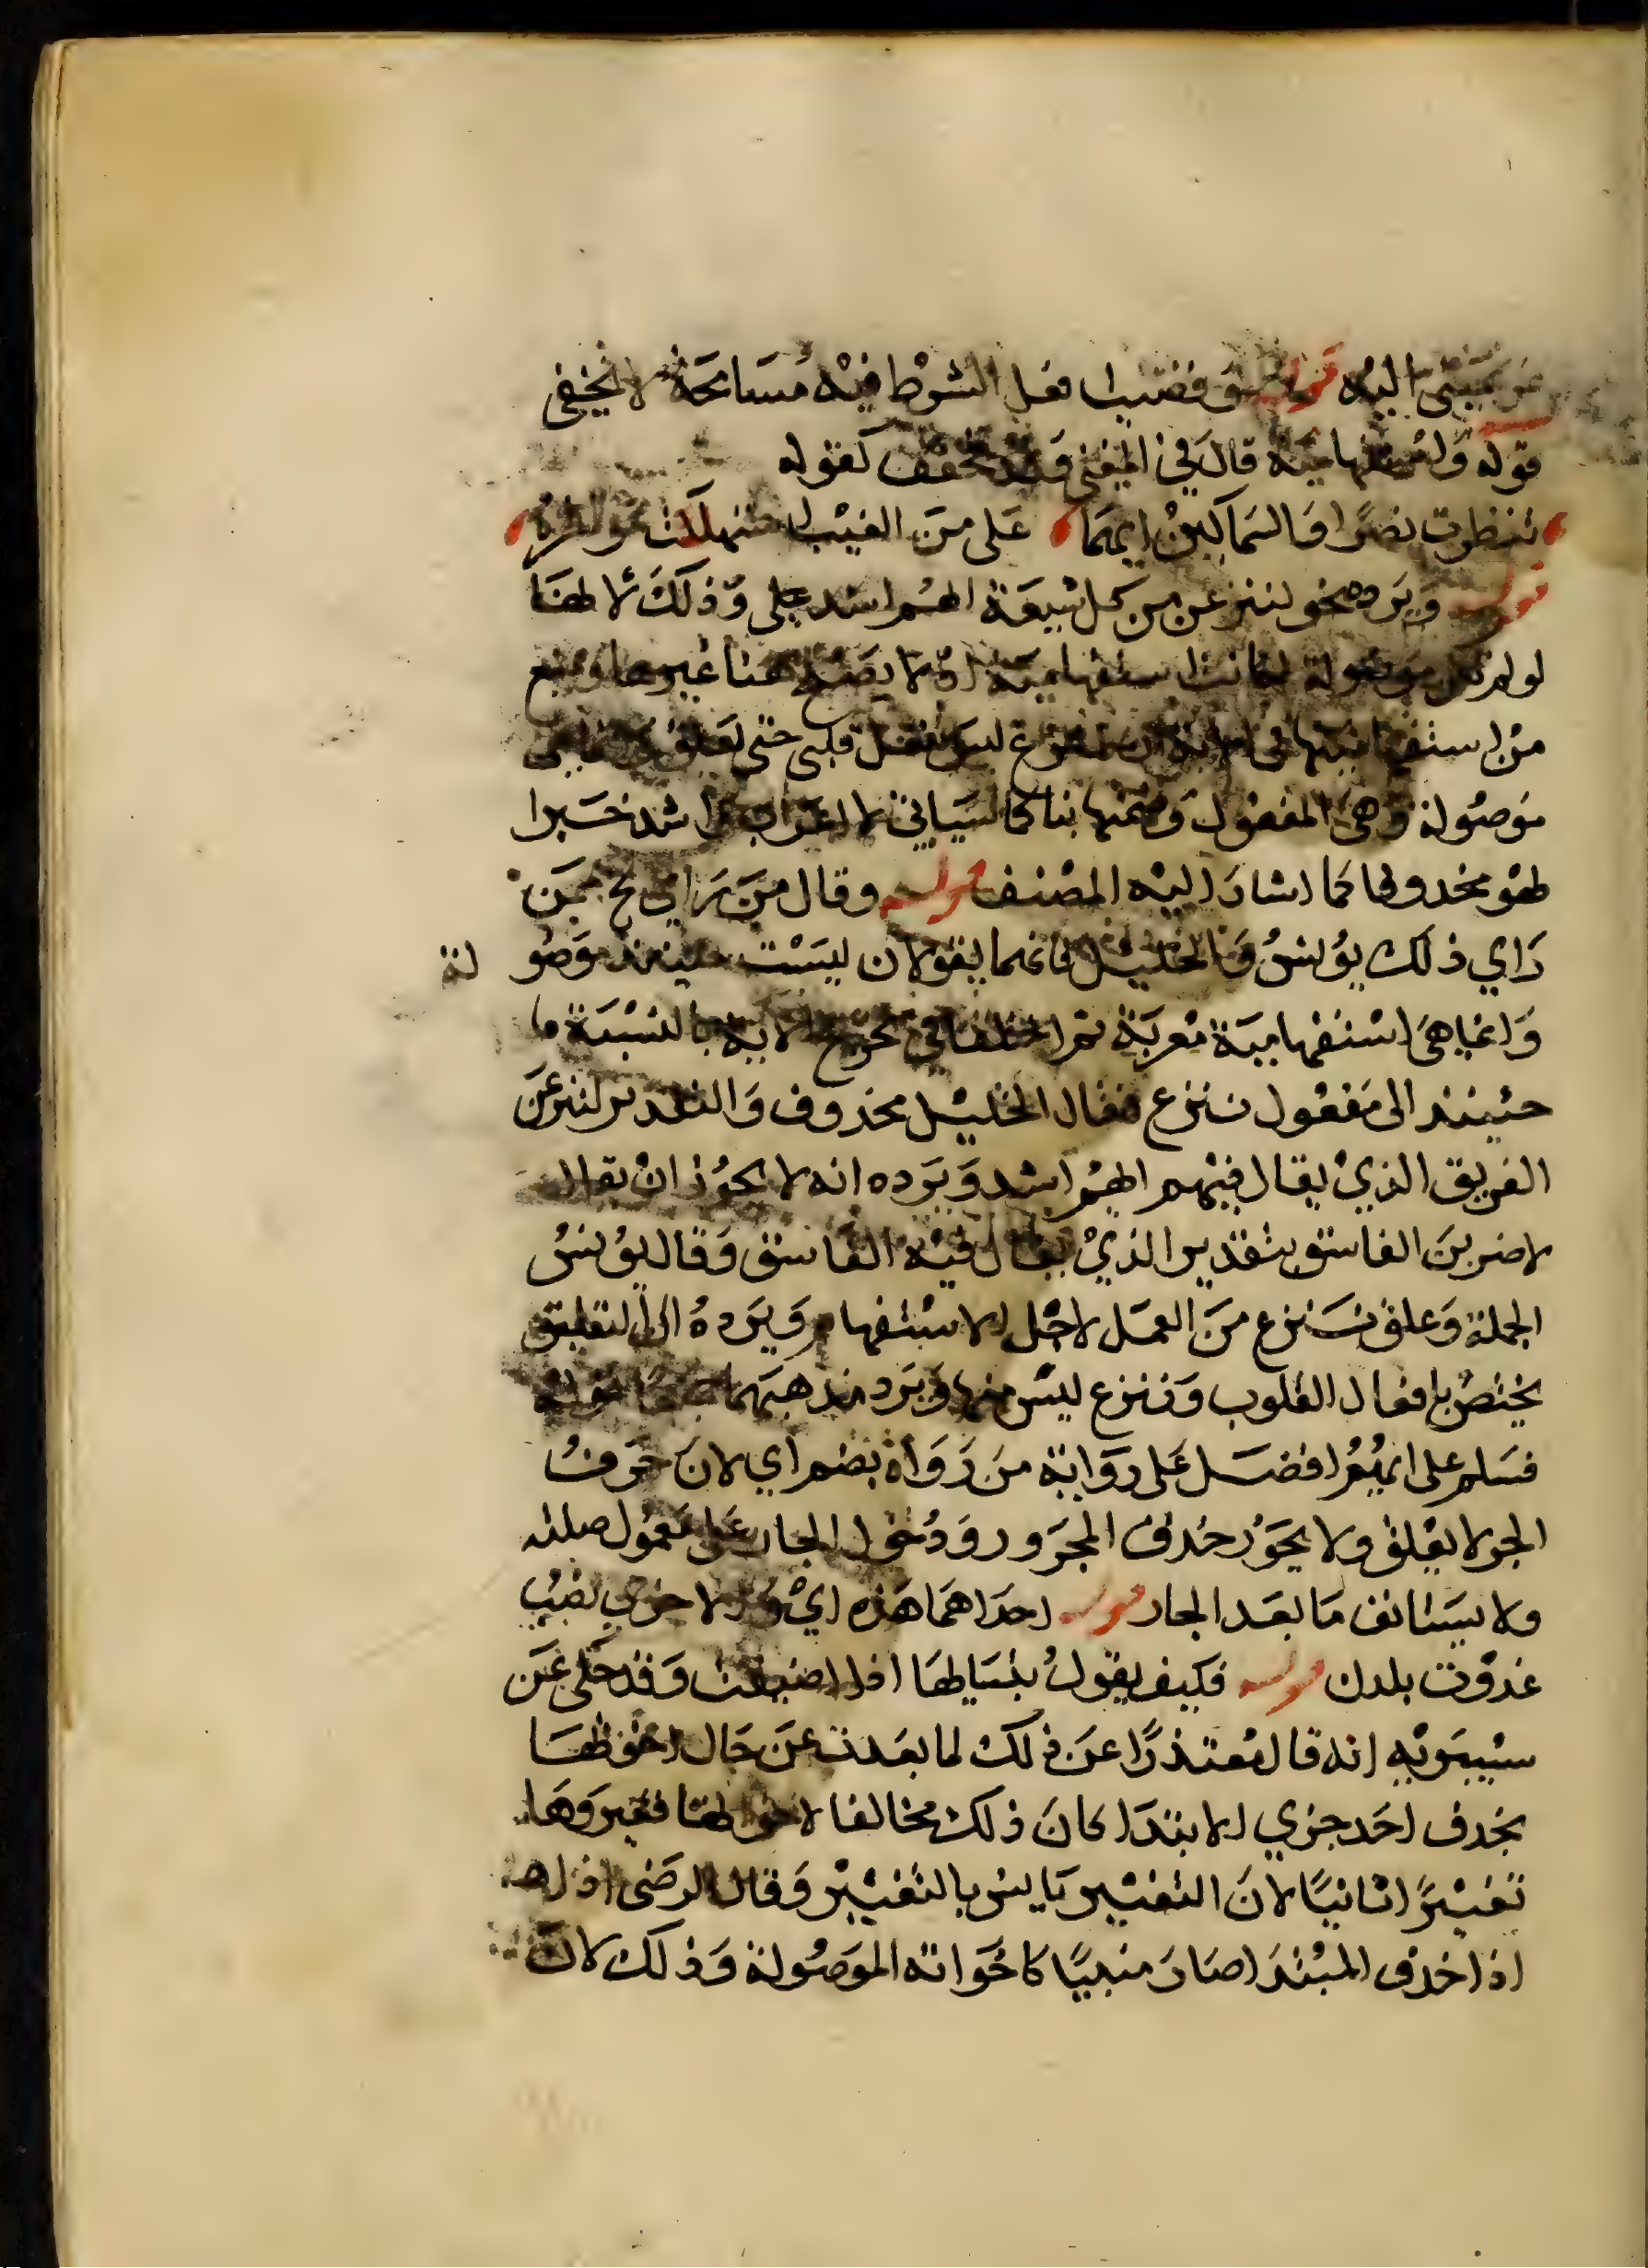 اليه قوله فعل الشرط فيه مسامحة لا تخفى
قوله واستفهامية قال في المغني وقد تخفف كقوله
تنظرت نصرا والسماكين ايهما على من الغيث استهلت مواطره
قوله ويرده نحو لننزعن من كل شيعة ايهم اشد على وذلك لانها
لو لم تكن موصولة لكانت استفهامية اذ لا يصلح هنا غيرها ويمنع
من استفهاميتها في الاية ان ننزع ليس بفعل قلبي حتى يعلق
موصولة وهي المفعول وضمتها بنا كما سياتي لا اعراب واشد خبرا
لهو محذوفا كما اشار اليه المصنف قوله وقال من راي ممن
راي ذلك يونس والخليل فانهما يقولان ليست حينئذ موصولة
وانما هي استفهامية معربة ثم اختلفا في تخريج الاية بالنسبة
حينئذ الى مفعول ننزع فقال الخليل محذوف والتقدير لننزعن
الفريق الذي يقال فيهم ايهم اشد ويرده انه لا يجوز ان يقال
لاضربن الفاسق بتقدير الذي يقال فيه الفاسق وقال يونس
الجملة وعلق ننزع من العمل لاجل الاستفهام ويرده ان التعليق
يختص بافعال القلوب وننزع ليس منها ويرد مذهبهما جميعا قوله
فسلم على ايهم افضل على رواية من رواه بضم اي لان حرف
الجر لا يعلق ولا يجوز حذف المجرور ودخول الجار على معمول صلته
ولا يستانف ما بعد الجار قوله احداهما هذه اي والاخرى نصب
غدوة بلدن قوله فكيف يقول ببنايها اذا اضيفت وقد حكى عن
سيبويه انه قال معتذرا عن ذلك لما بعدت عن حال اخوتها
بحذف احد جزي الابتدا كان ذلك مخالفا لاخوتها فغيروها
تغييرا ثانيا لان التغيير يانس بالتغيير وقال الرضى
اذا حذف المبتدا صار مبنيا كاخواته الموصولة وذلك لان